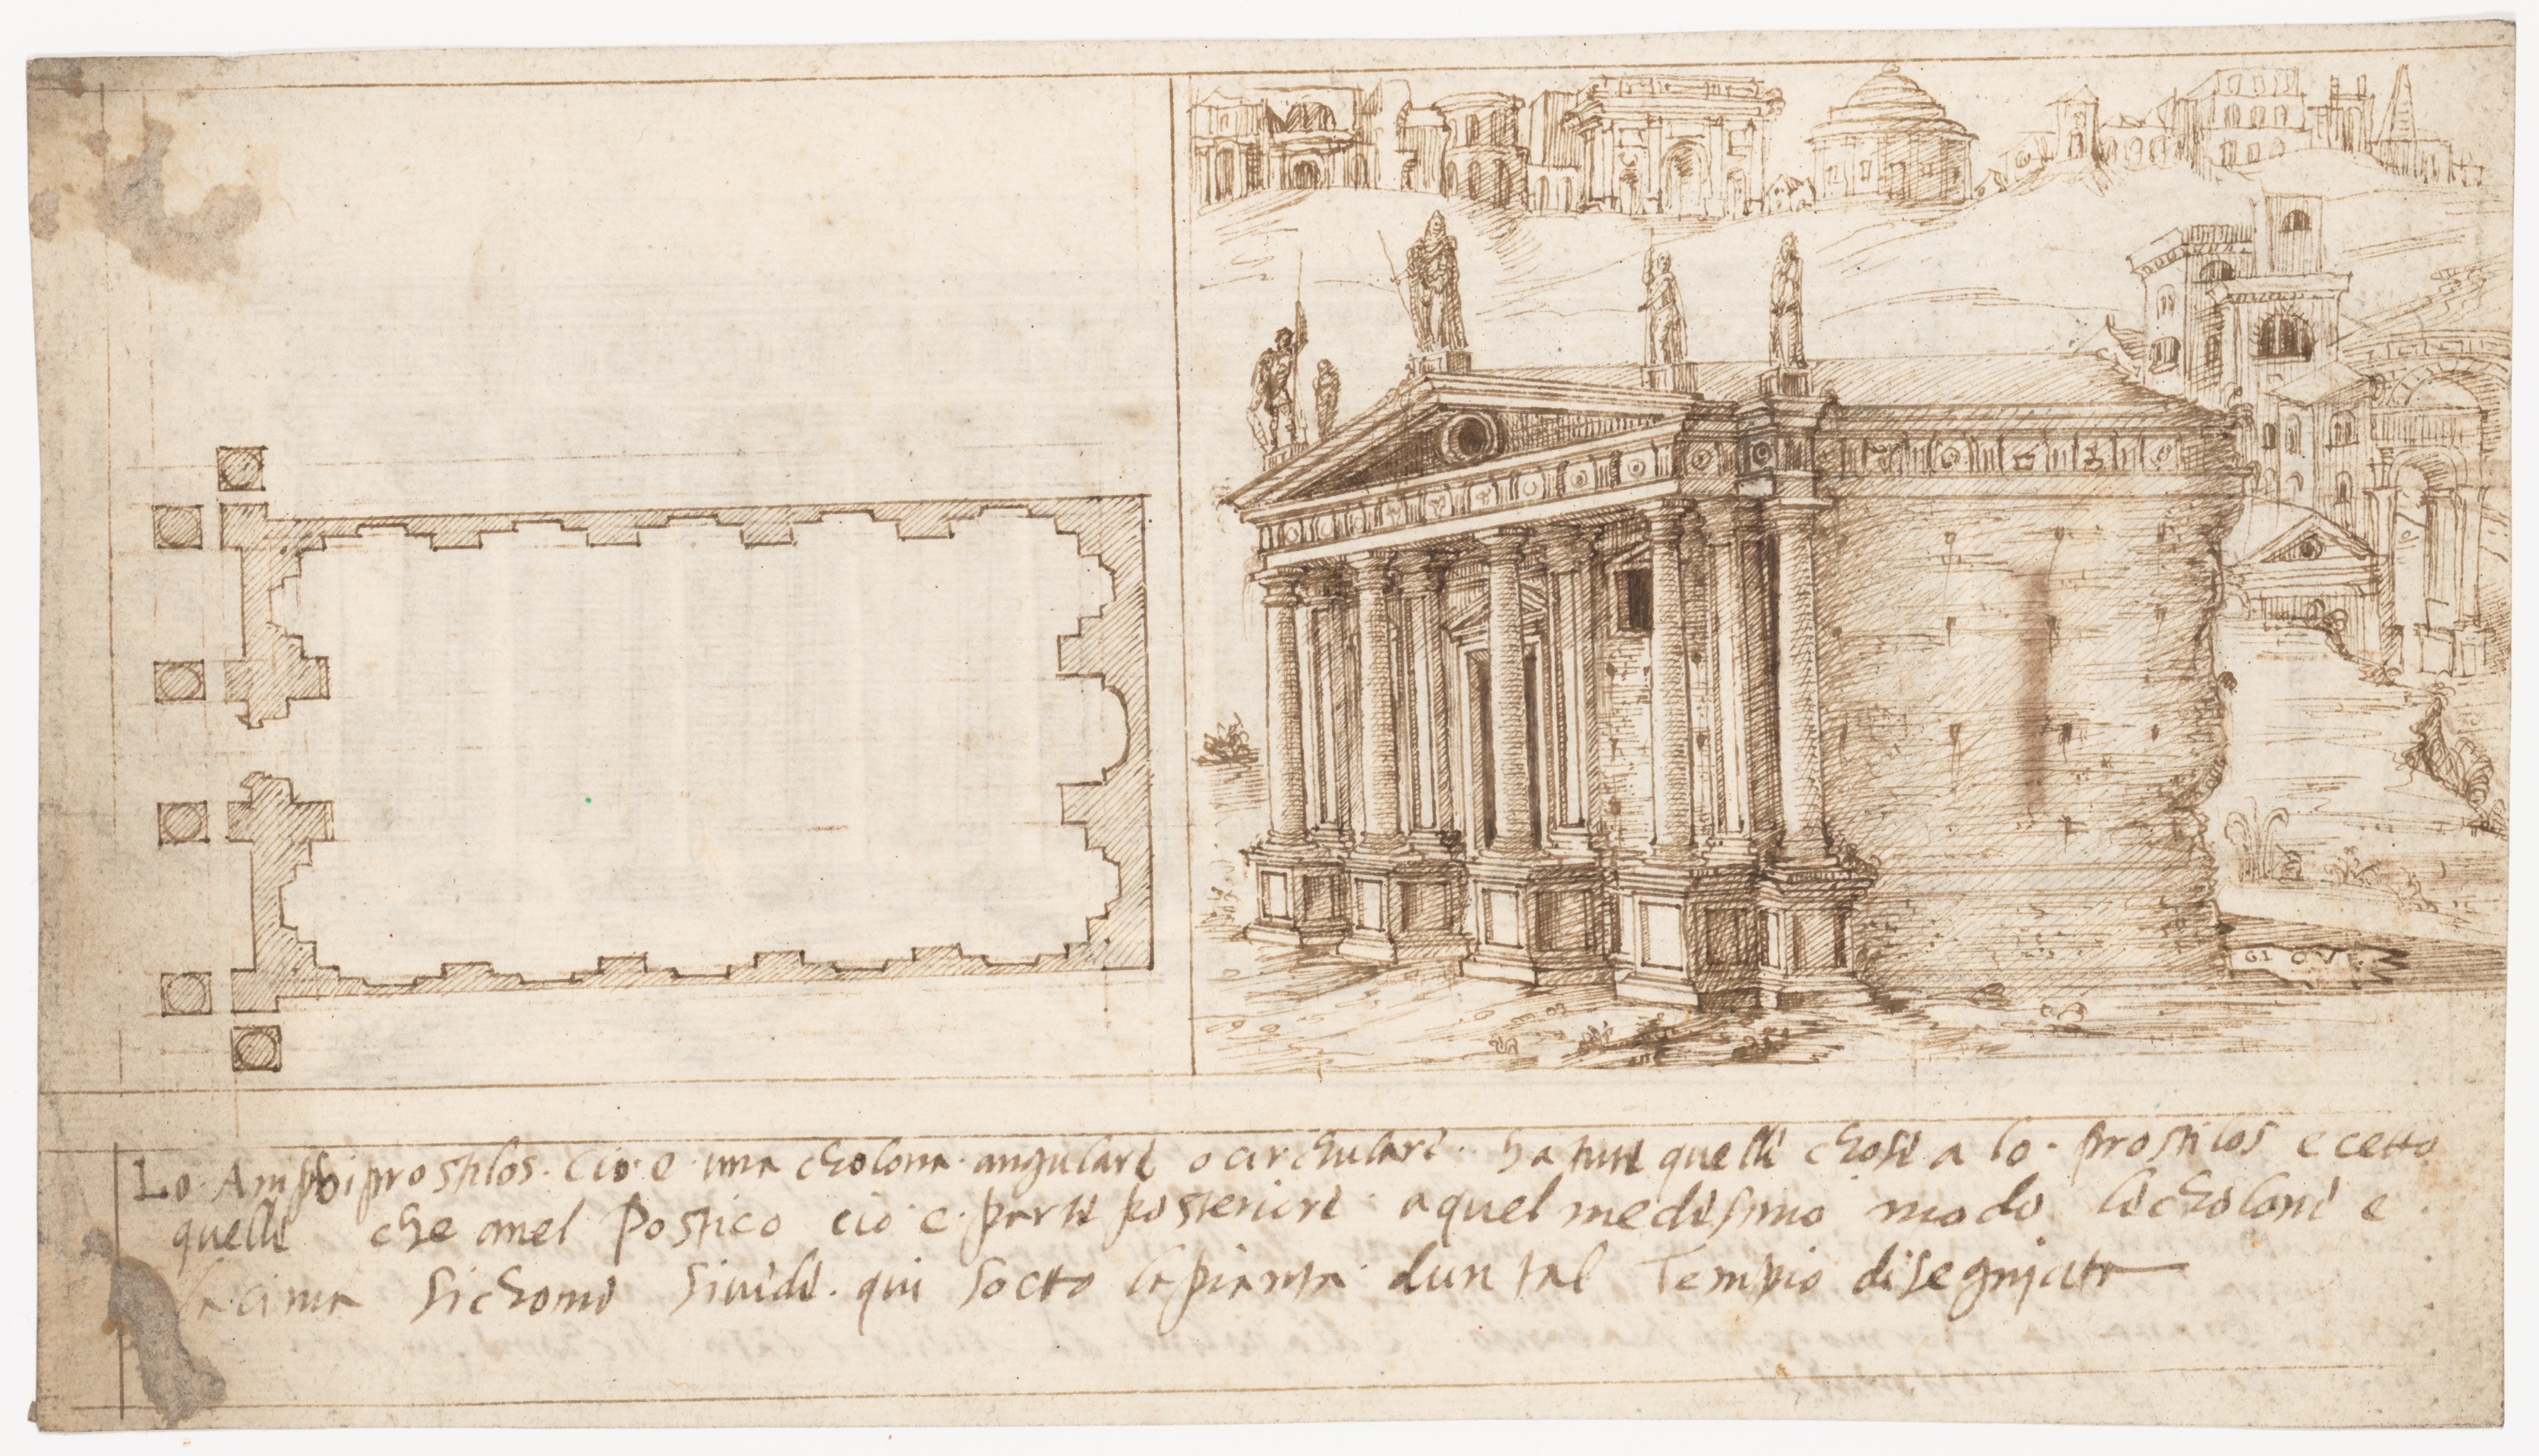 GIOVE
Lo Amphiprostilos. Cio e una cholona angulare o circhulare ha tute quelle chose a lo prostilos ecetto
quelle che anel Postico cio e parte posteriore a quel medesimo modo le cholone e
la cima sichome sivede. qui socto la pianta dun tal Tempio disegniata